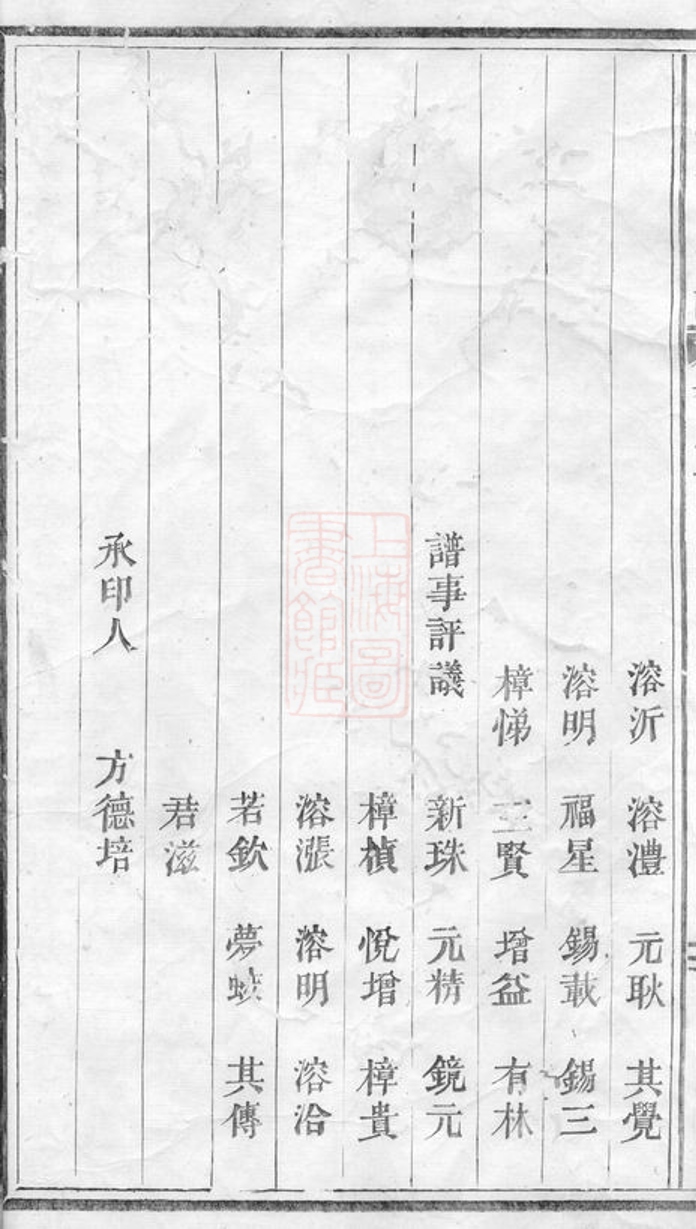 溶沂 溶澧 元耿 其覺
溶明 福星 錫載 錫三
樟悌 三賢 增益 有林
譜事評議 新珠 元精 鏡元
樟楨 悅增 樟貴
溶漲 溶明 溶洽
若欽 夢蛟 其傳
君滋
承印人 方德培
上海圖書館藏